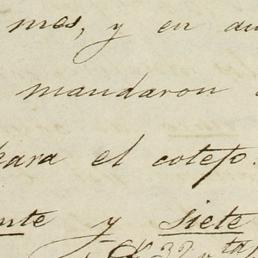 mes, y en
mandaron
para el cotejo.
y siete